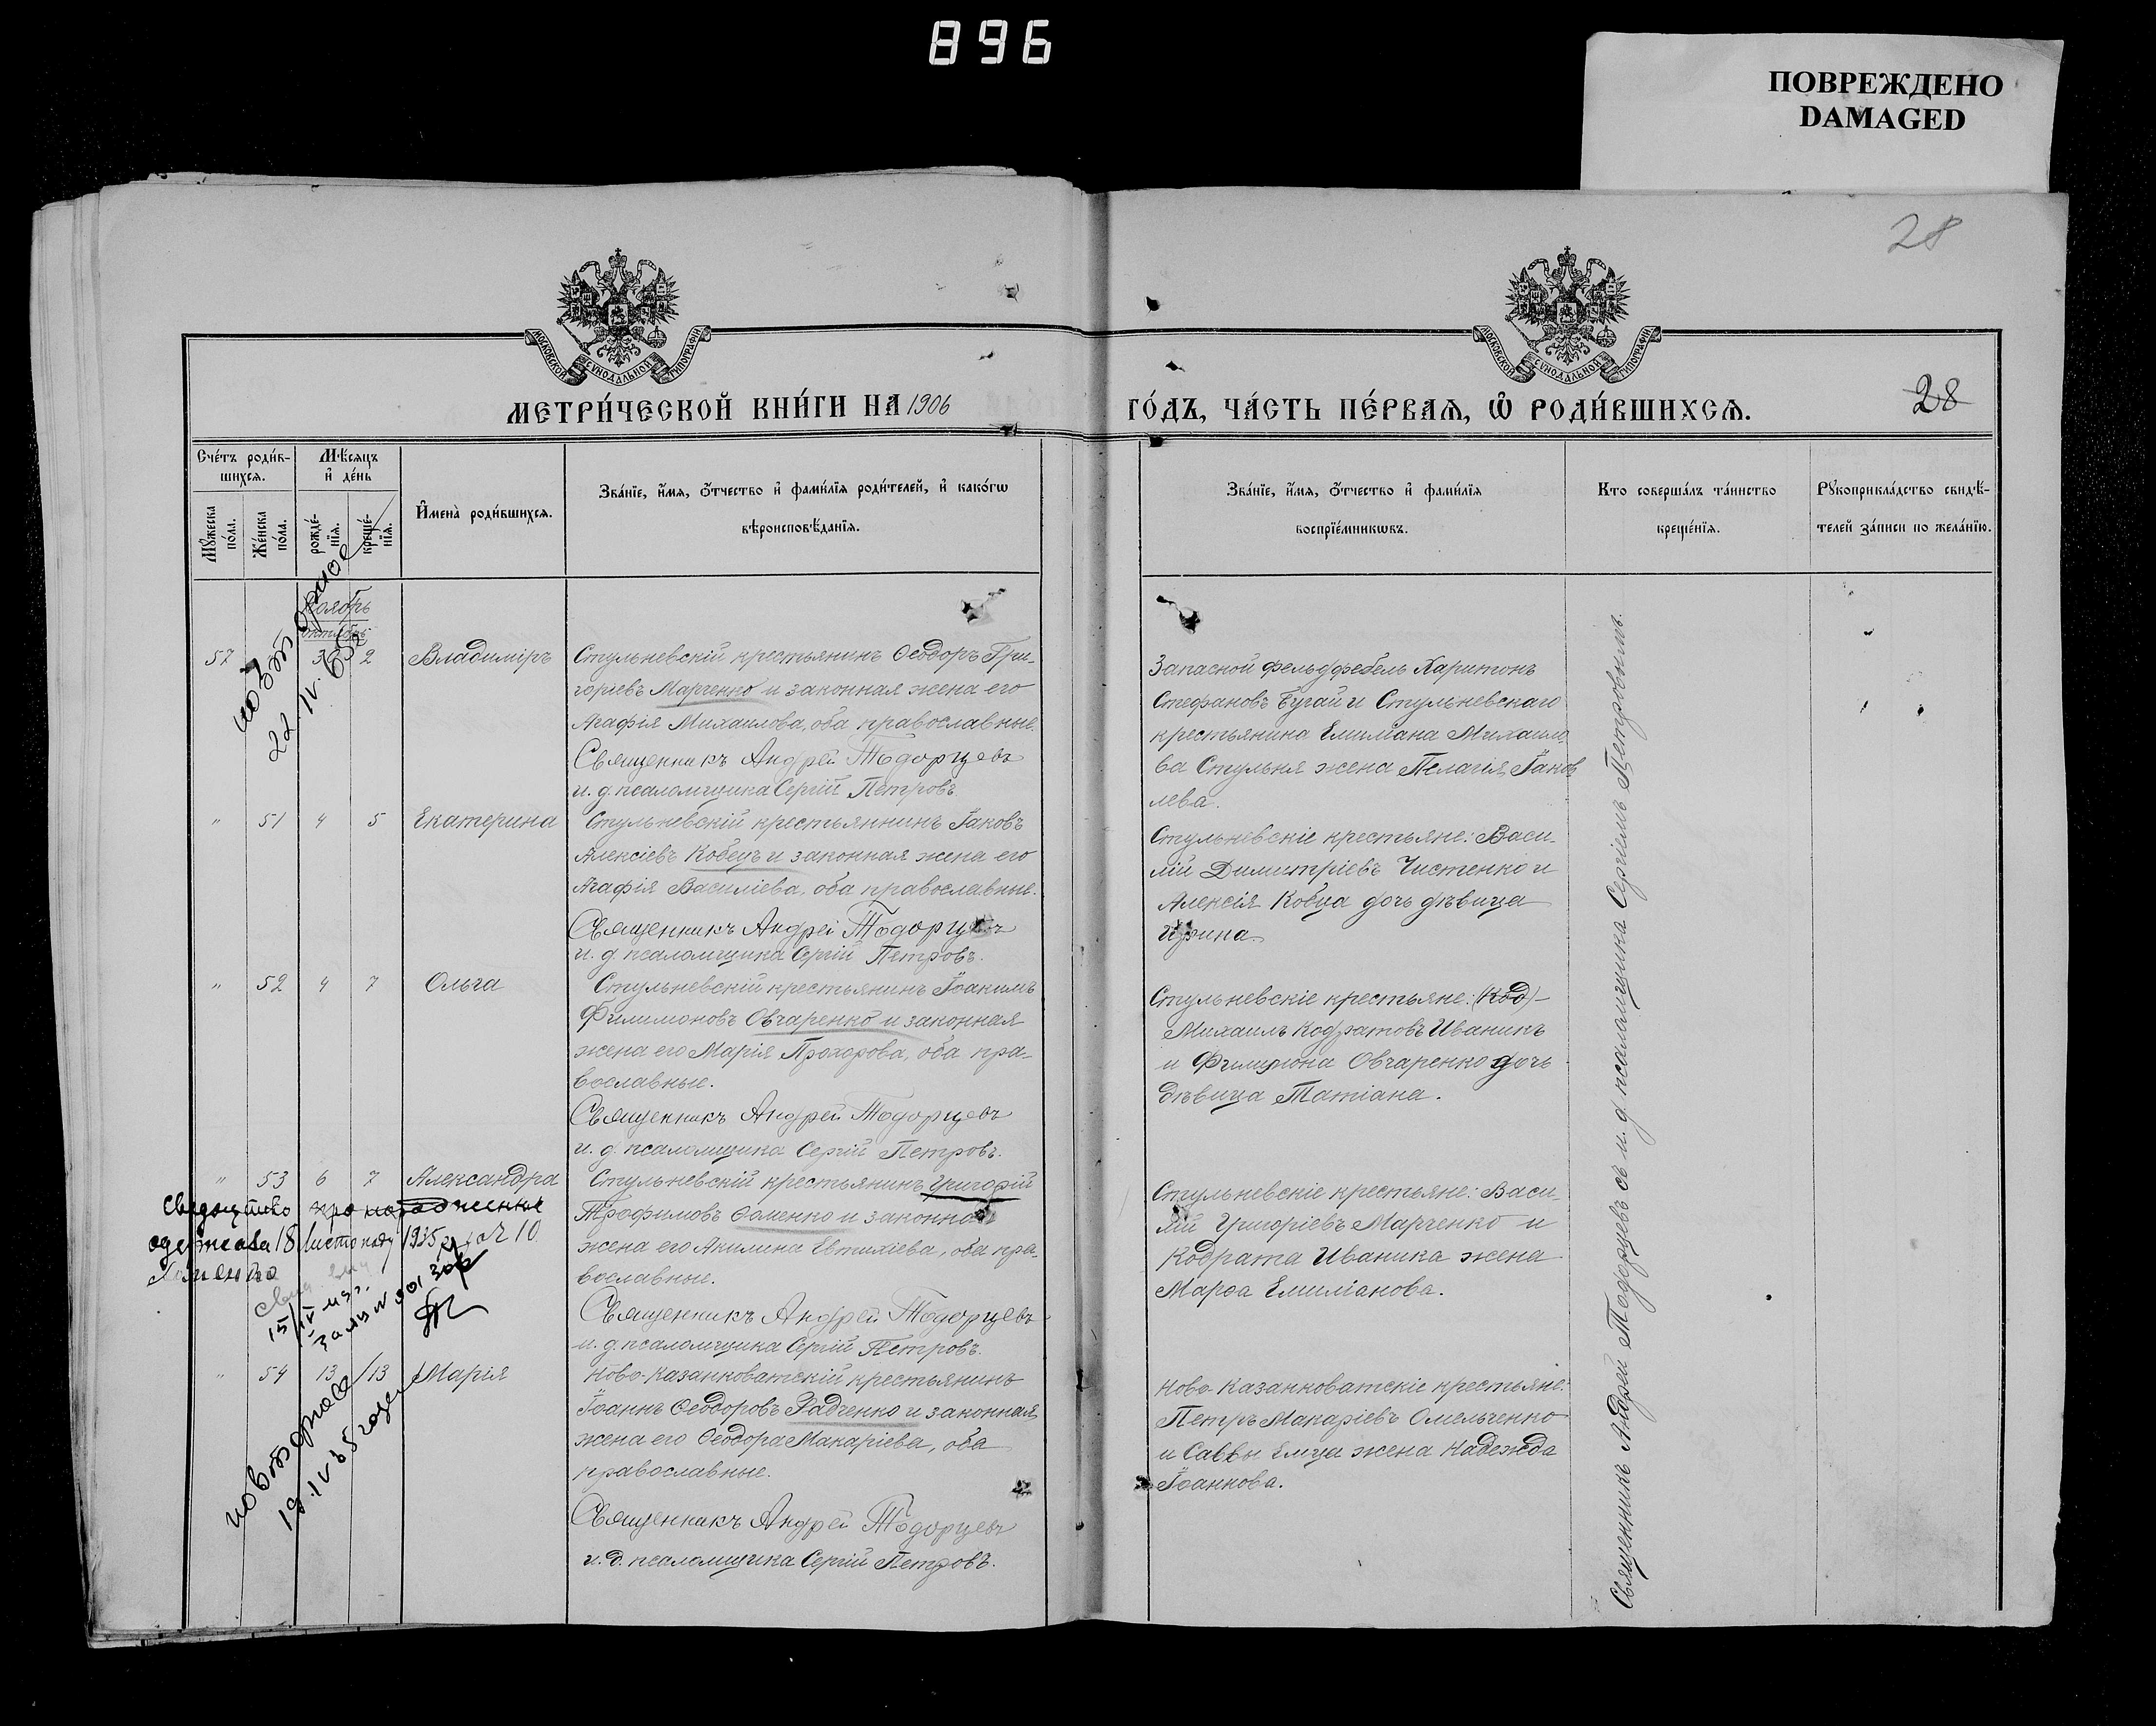 896
ПОВРЕЖДЕНО
DAMAGED
28
МОСКОВСКОЙ СѴНОДАЛЬНОЙ ТИПОГРАФІИ
МОСКОВСКОЙ СѴНОДАЛЬНОЙ ТИПОГРАФІИ
МЕТРИ́ЧЕСКОЙ КНИ́ГИ НА 1906
ГО́ДЪ, ЧА́СТЬ ПЕ́РВАѦ, Ѽ РОДИ́ВШИХСѦ.
28
Сче́тъ роди́в-
шихсѧ.
Мꙋ́жеска
по́ла.
Же́нска
по́ла.
Мѣ́сѧцъ
и҆ де́нь
рожде́-
нїѧ.
креще́-
нїѧ.
И҆мена̀ роди́вшихсѧ.
Зва́нїе, и҆́мѧ, ѻ҆́тчество и҆ фами́лїѧ роди́телей, и҆ како́гѡ
вѣроисповѣ́данїѧ.
Зва́нїе, и҆́мѧ, ѻ҆́тчество и҆ фами́лїѧ
воспрїе́мникѡвъ.
Кто соверша́лъ та́инство
креще́нїѧ.
Рꙋкоприкла́дство свидѣ́-
телей за́писи по жела́нїю.
Ноябрь
октябрь
57 2 Владиміръ
Стульневскій крестьянинъ Ѳеодоръ Гри-
горіевъ Марченко и законная жена его
Агафія Михаилова, оба православные.
Священникъ Андрей Тодорцевъ
и. д. псаломщика Сергій Петровъ
Запасной фельдфебель Харитонъ
Стефановъ Бугай и Стульневскаго
крестьянина Емиліана Михаило-
ва Стульня жена Пелагія Іаков
лева.
" 51 4 5 Екатерина
Стульневскій крестьянинъ Іаковъ
Алексіевъ Кобецъ и законная жена его
Агафія Василіева, оба православные.
Священникъ Андрей Тодорцевъ
и. д. псаломщика Сергій Петровъ.
Стульневскіе крестьяне: Васи-
лій Димитріевъ Чистенко и
Алексія Кобца дочь дѣвица
Ирина.
" 52 4 7 Ольга
Стульневскій крестьянинъ Іоакимъ
Филимоновъ Овчаренко и законная
жена его Марія Прохорова, оба пра-
вославные.
Священникъ Андрей Тодорцевъ
и. д. псаломщика Сергій Петровъ.
Стульневскіе крестьяне: (Код) -
Михаилъ Кодратовъ Иваникъ
и Филимона Овчаренко дочь
дѣвица Татіана.
" 53 6 7 Александра
Стульневскій крестьянинъ Григорій
Трофимовъ Ѳоменко и законная
жена его Акилина Евтихіева, оба пра-
вославные.
Священникъ Андрей Тодорцевъ
и. д. псаломщика Сергій Петровъ.
Стульневскіе крестьяне: Васи-
лій Григоріевъ Марченко и
Кодрата Иваника жена
Марѳа Емиліанова.
одержала 18 листопаду 1935
" 54 13 13 Марія
Ново-Казанковатскій крестьянинъ
Іоаннъ Ѳеодоровъ Радченко и законная
жена его Ѳеодора Макаріева, оба
православные.
Священникъ Андрей Тодорцевъ
и. д. псаломщика Сергій Петровъ.
Ново-Казанковатскіе крестьяне:
Петръ Макаріевъ Омельченко
и Саввы Емца жена Надежда
Іоаннова.
Священникъ Андрей Тодорцевъ съ и. д. псаломщика Сергіемъ Петровымъ.